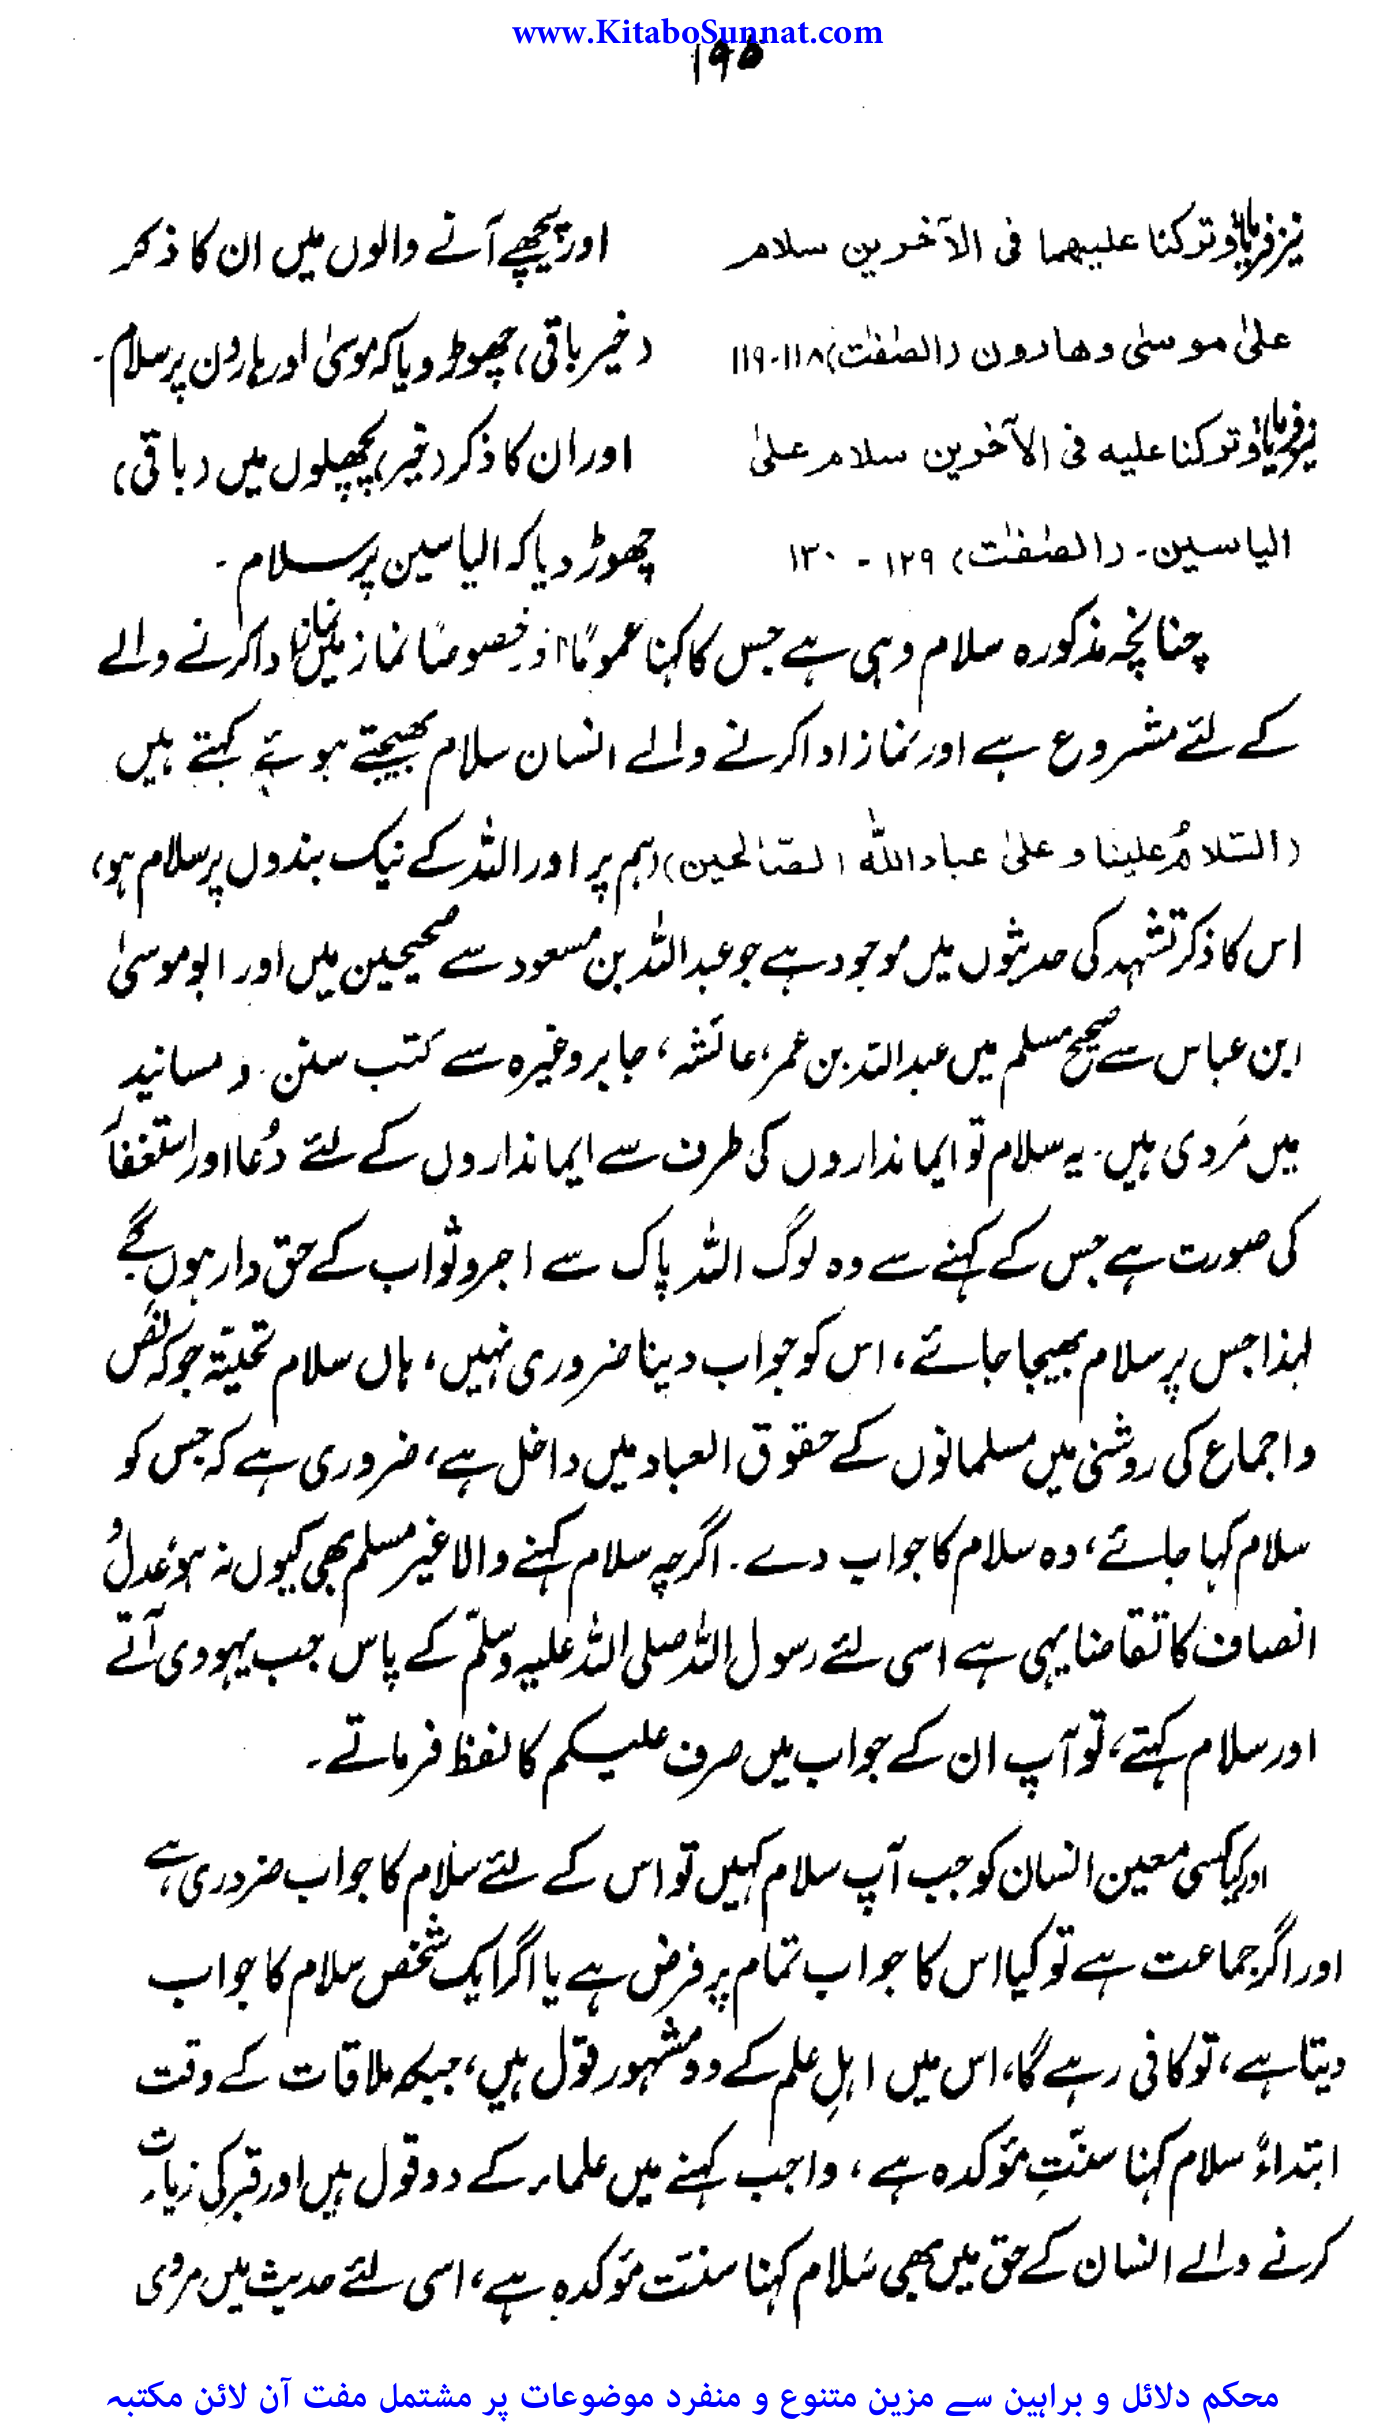 www.KitaboSunnat.com
۱۹۵
نیز فرمایا: وترکنا علیهما فی الآخرین سلام
علیٰ موسیٰ وهارون (الصٰفٰت) ۱۱۸-۱۱۹
نیز فرمایا: وترکنا علیه فی الآخرین سلام علیٰ
الیاسین۔ (الصٰفٰت) ۱۲۹ - ۱۳۰
اور پیچھے آنے والوں میں ان کا ذکر
(خیر باقی) چھوڑ دیا کہ موسیٰ اور ہارون پر سلام۔
اور ان کا ذکر (خیر) پچھلوں میں (باقی)
چھوڑ دیا کہ الیاسین پر سلام۔
چنانچہ مذکورہ سلام وہی ہے جس کا کہنا عموماً اور خصوصاً نماز میں نماز ادا کرنے والے
کے لئے مشروع ہے اور نماز ادا کرنے والے انسان سلام بھیجتے ہوئے کہتے ہیں
(السّلامُ علینا وعلیٰ عباد اللّٰه الصّالحین) (ہم پر اور اللہ کے نیک بندوں پر سلام ہو)
اس کا ذکر تشہد کی حدیثوں میں موجود ہے جو عبداللہ بن مسعود سے صحیحین میں اور ابو موسیٰ
ابن عباس سے صحیح مسلم میں عبداللہ بن عمر، عائشہ، جابر وغیرہ سے کتب سنن و مسانید
میں مَروی ہیں۔ یہ سلام تو ایمانداروں کی طرف سے ایمانداروں کے لئے دُعا اور استغفار
کی صورت ہے جس کے کہنے سے وہ لوگ اللہ پاک سے اجر و ثواب کے حق دار ہوں گے
لہذا جس پر سلام بھیجا جائے، اس کو جواب دینا ضروری نہیں، ہاں سلام تحیّۃ جو کہ نَص
و اجماع کی روشنی میں مسلمانوں کے حقوق العباد میں داخل ہے، ضروری ہے کہ جس کو
سلام کہا جائے، وہ سلام کا جواب دے۔ اگرچہ سلام کہنے والا غیر مسلم بھی کیوں نہ ہو عدل و
انصاف کا تقاضا یہی ہے اسی لئے رسول اللہ صلی اللہ علیہ وسلّم کے پاس جب یہودی آتے
اور سلام کہتے، تو آپ ان کے جواب میں صرف علیکم کا لفظ فرماتے۔
اور کیا کسی معین انسان کو جب آپ سلام کہیں تو اس کے لئے سلام کا جواب ضروری ہے
اور اگر جماعت ہے تو کیا اس کا جواب تمام پر فرض ہے یا اگر ایک شخص سلام کا جواب
دیتا ہے، تو کافی رہے گا، اس میں اہلِ علم کے دو مشہور قول ہیں، جبکہ ملاقات کے وقت
ابتداءً سلام کہنا سنّتِ مؤکدہ ہے، واجب کہنے میں علماء کے دو قول ہیں اور قبر کی زیارت
کرنے والے انسان کے حق میں بھی سَلام کہنا سنّت مؤکدہ ہے، اسی لئے حدیث میں مروی
محکم دلائل و براہین سے مزین متنوع و منفرد موضوعات پر مشتمل مفت آن لائن مکتبہ